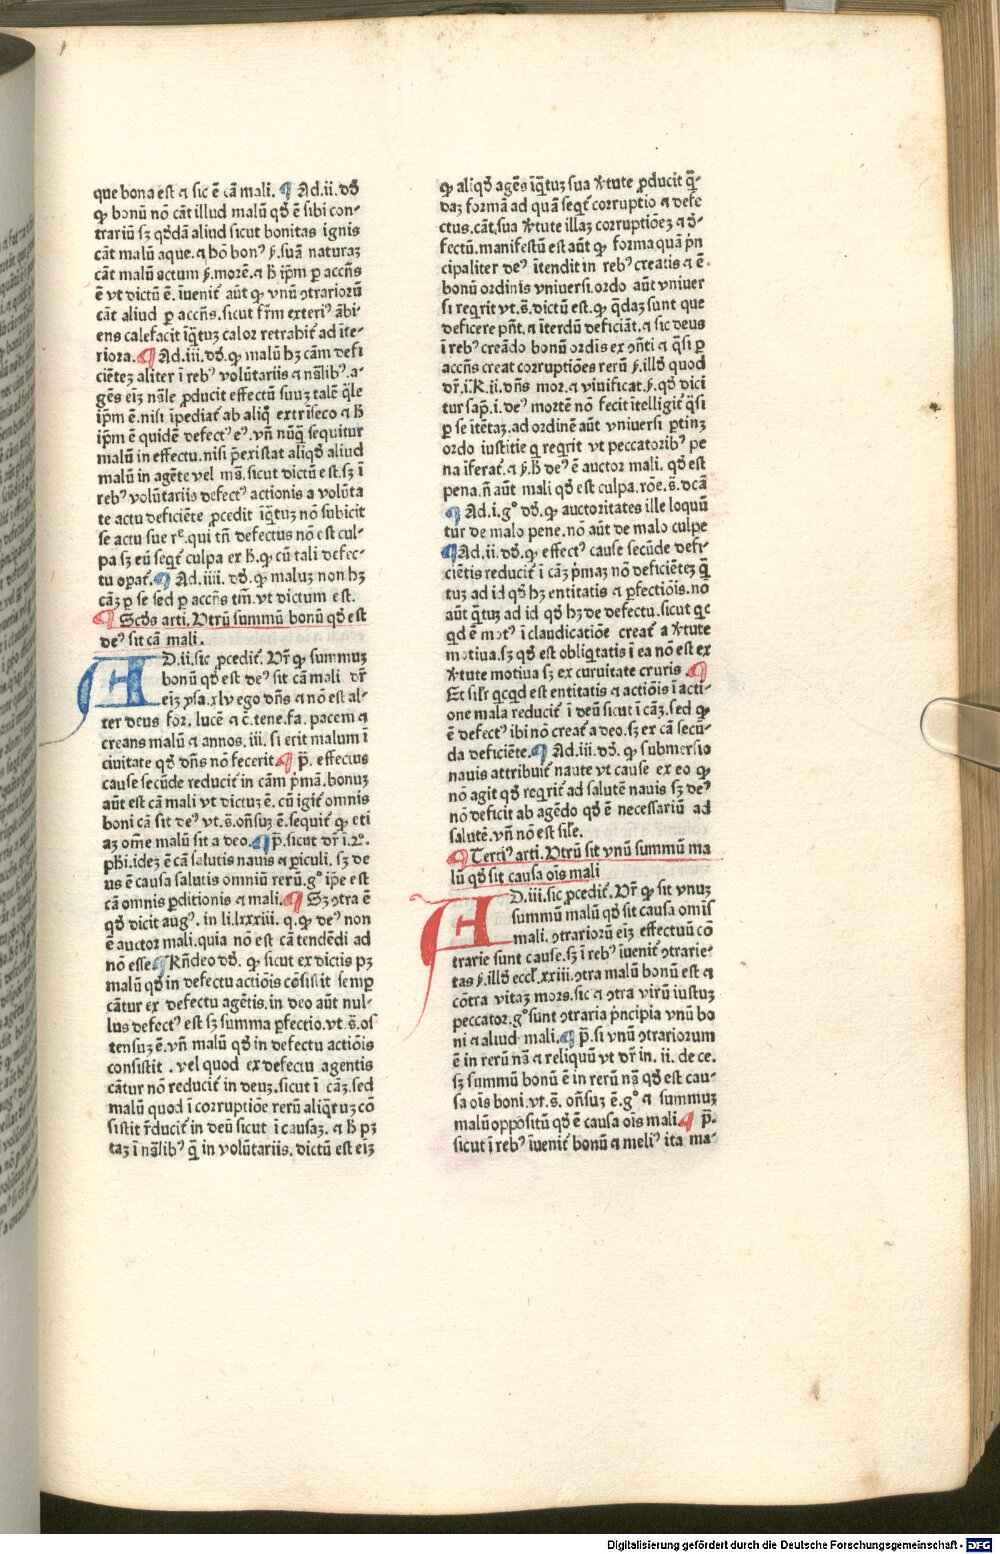 que bona est ⁊ sic ē cā mali. ¶ Ad .ii. dd̄
ꝙ bonū nō cāt illud malū qd̄ ē sibi con-
trariū sꝫ qd̄dā aliud sicut bonitas ignis
cāt malū aque. ⁊ hō bonꝰ ꝓ. suā naturaꝫ
cāt malū actum ꝓ. morē. ⁊ h̄ ip̄m ꝑ accn̄s
ē vt dictū ē. iuenit̄ aūt ꝙ vnū ↄtrariorū
cāt aliud ꝑ accn̄s. sicut fr̄m exteriꝰ ābi-
ens calefacit īq̄tuꝫ calor retrahit̄ ad īte-
riora. ¶ Ad .iii. dd̄. ꝙ malū hꝫ cām defi
ciēteꝫ aliter ī rebꝰ volūtariis ⁊ nālibꝰ. a-
gēs eiꝫ nāle ꝓducit effectū suuꝫ talē q̄le
ip̄m ē. nisi īpediat̄ ab aliq̄ extrīseco ⁊ h̄
ip̄m ē quidē defectꝰ eꝰ. vn̄ nūq̄ sequitur
malū in effectu. nisi p̄existat aliqd̄ aliud
malū in agēte vel mā. sicut dictū est. sꝫ ī
rebꝰ volūtariis defectꝰ actionis a volūta
te actu deficiēte ꝓcedit īq̄tuꝫ nō subicit
se actu sue re. qui tn̄ defectus nō est cul-
pa sꝫ eū seqt̄ culpa ex h̄. ꝙ cū tali defec-
tu opat̄. ¶ Ad .iiii. dd̄. ꝙ maluꝫ non hꝫ
cāꝫ ꝑ se sed ꝑ accn̄s tm̄. vt dictum est.
¶ Scd̄s arti. Vtrū summū bonū qd̄ est
deꝰ sit cā mali.
AD .ii. sic ꝓcedit̄. Vr̄ ꝙ summuꝫ
bonū qd̄ est deꝰ sit cā mali dr̄
eiꝫ ysa. xlv ego dn̄s ⁊ nō est al-
ter deus for. lucē ⁊ c̄. tene. fa. pacem ⁊
creans malū ⁊ amos. iii. si erit malum ī
ciuitate qd̄ dn̄s nō fecerit. ¶ p̄. effectus
cause secūde reducit̄ in cām p̄mā. bonuꝫ
aūt est cā mali vt dictuꝫ ē. cū igit̄ omnis
boni cā sit deꝰ vt. s̄. on̄suꝫ ē. sequit̄ ꝙ eti
aꝫ om̄e malū sit a deo. ¶ p̄. sicut dr̄ ī .2º.
ph̄i. ideꝫ ē cā salutis nauis ⁊ ꝑiculi. sꝫ de
us ē causa salutis omniū rerū. gº ip̄e est
cā omnis ꝑditionis ⁊ mali. ¶ Sꝫ ↄtra ē
qd̄ dicit augꝰ. in li. lxxxiii. q. ꝙ deꝰ non
ē auctor mali. quia nō est cā tendēdi ad
nō esse. ¶ Rn̄deo dd̄. ꝙ sicut ex dictis pꝫ
malū qd̄ in defectu actiōis cōsistit semꝑ
cātur ex defectu agētis. in deo aūt nul-
lus defectꝰ est sꝫ summa ꝑfectio. vt. s̄. os
tensuꝫ ē. vn̄ malū qd̄ in defectu actiōis
consistit . vel quod ex defectu agentis
cātur nō reducit̄ in deuꝫ. sicut ī cāꝫ. sed
malū quod ī corruptiōe rerū aliq̄ruꝫ cō
sistit r̄ducit̄ in deū sicut ī causaꝫ. ⁊ h̄ pꝫ
taꝫ ī nālibꝰ q̄ in volūtariis. dictū est eiꝫ
ꝙ aliqd̄ agēs īq̄tuꝫ sua v̓tute ꝓducit q̄-
daꝫ formā ad quā seqt̄ corruptio ⁊ defe
ctus. cāt. sua v̓tute illaꝫ corruptiōeꝫ ⁊ d̄-
fectū. manifestū est aūt ꝙ forma quā p̄n
cipaliter deꝰ ītendit in rebꝰ creatis ⁊ ē.
bonū ordinis vniuersi. ordo aūt vniuer
si reqrit vt. s̄. dictū est. ꝙ q̄daꝫ sunt que
deficere pn̄t. ⁊ īterdū deficiāt. ⁊ sic deus
ī rebꝰ creādo bonū ordīs ex ↄn̄ti ⁊ q̄si ꝑ
accn̄s creat corruptiōes rerū ꝓ. illd̄ quod
dr̄. i. R. ii. dn̄s mor. ⁊ viuificat. ꝓ. qd̄ dici
tur sap̄. i. deꝰ mortē nō fecit ītelligit̄ q̄si
ꝑ se ītētaꝫ. ad ordinē aūt vniuersi ꝑtinꝫ
ordo iustitie q̄ reqrit vt peccatoribꝰ pe
na īferat̄. ⁊ ꝓ. h̄ deꝰ ē auctor mali. qd̄ est
pena. n̄ aūt mali qd̄ est culpa. rōe. s̄. dcā
¶ Ad .i. gº dd̄. ꝙ auctoritates ille loquū
tur de malo pene. nō aūt de malo culpe
¶ Ad .ii. dd̄. ꝙ effectꝰ cause secūde defi-
ciētis reducit̄ ī cāꝫ p̄maꝫ nō deficiēteꝫ q̄
tuꝫ ad id qd̄ hꝫ entitatis ⁊ ꝑfectiōis. nō
aūt q̄tuꝫ ad id qd̄ hꝫ de defectu. sicut qc
qd ē motꝰ ī claudicatiōe creat̄ a v̓tute
motiua. sꝫ qd̄ est obliq̄tatis ī ea nō est ex
v̓tute motiua sꝫ ex curuitate cruris. ¶
Et sil̓r qcqd est entitatis ⁊ actiōis ī acti-
one mala reducit̄ ī deū sicut ī cāꝫ. sed ꝙ
ē defectꝰ ibi nō creat̄ a deo. sꝫ ex cā secū-
da deficiēte. ¶ Ad .iii. dd̄. ꝙ submersio
nauis attribuit̄ naute vt cause ex eo ꝙ
nō agit qd̄ reqrit̄ ad salutē nauis sꝫ deꝰ
nō deficit ab agēdo qd̄ ē necessariū ad
salutē. vn̄ nō est sil̓e.
¶ Tertiꝰ arti. Vtrū sit vnū summū ma
lū qd̄ sit causa oīs mali
AD .iii. sic ꝓcedit̄. Vr̄ ꝙ sit vnuꝫ
summū malū qd̄ sit causa omīs
mali. ↄtrariorū eiꝫ effectuū cō
trarie sunt cause. sꝫ ī rebꝰ īuenit̄ ↄtrarie-
tas ꝓ. illd̄ eccl̓. xxiii. ↄtra malū bonū est ⁊
cōtra vitaꝫ mors. sic ⁊ ↄtra virū iustuꝫ
peccator. gº sunt ↄtraria p̄ncipia vnū bo
ni ⁊ aliud mali. ¶ p̄. si vnū ↄtrariorum
ē in rerū nā ⁊ reliquū vt dr̄ in. ii. de ce.
sꝫ summū bonū ē in rerū nā qd̄ est cau-
sa oīs boni. vt. s̄. on̄suꝫ ē. gº ⁊ summuꝫ
malū oppositū qd̄ ē causa oīs mali. ¶ p̄.
sicut ī rebꝰ īuenit̄ bonū ⁊ meliꝰ ita ma-
Digitalisierung gefördert durch die Deutsche Forschungsgemeinschaft - DFG